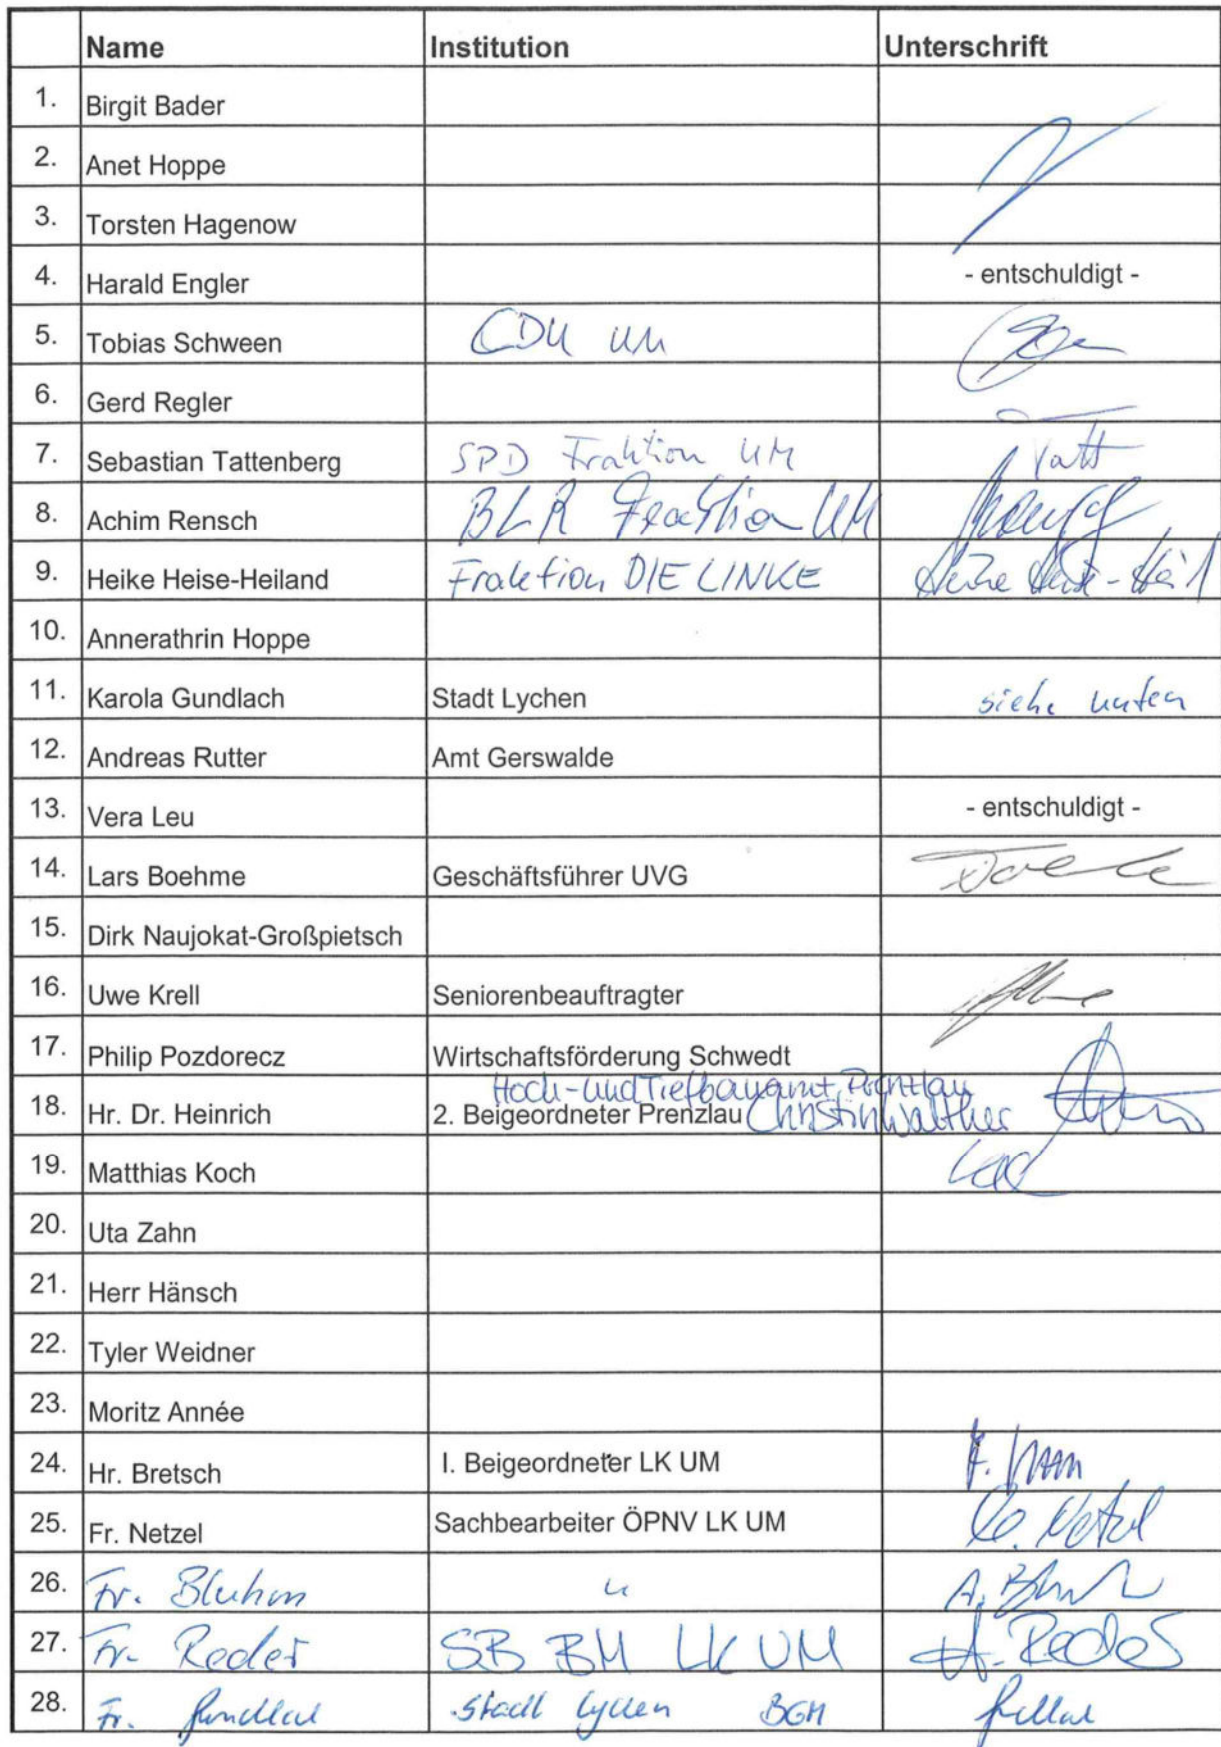 Name Institution Unterschrift
1. Birgit Bader
2. Anet Hoppe
3. Torsten Hagenow
4. Harald Engler - entschuldigt -
5. Tobias Schween CDU UM
6. Gerd Regler
7. Sebastian Tattenberg SPD Fraktion UM Tatt
8. Achim Rensch BLR Fraktion UM
9. Heike Heise-Heiland Fraktion DIE LINKE
10. Annerathrin Hoppe
11. Karola Gundlach Stadt Lychen siehe unten
12. Andreas Rutter Amt Gerswalde
13. Vera Leu - entschuldigt -
14. Lars Boehme Geschäftsführer UVG
15. Dirk Naujokat-Großpietsch
16. Uwe Krell Seniorenbeauftragter
17. Philip Pozdorecz Wirtschaftsförderung Schwedt
Hoch- und Tiefbauamt Prenzlau
18. Hr. Dr. Heinrich 2. Beigeordneter Prenzlau Christin Walther
19. Matthias Koch
20. Uta Zahn
21. Herr Hänsch
22. Tyler Weidner
23. Moritz Année
24. Hr. Bretsch I. Beigeordneter LK UM
25. Fr. Netzel Sachbearbeiter ÖPNV LK UM Netzel
26. Fr. Bluhm " A.
27. Fr. Reder SB BM LK UM A. Reder
28. Fr. Gundlach Stadt Lychen BGM